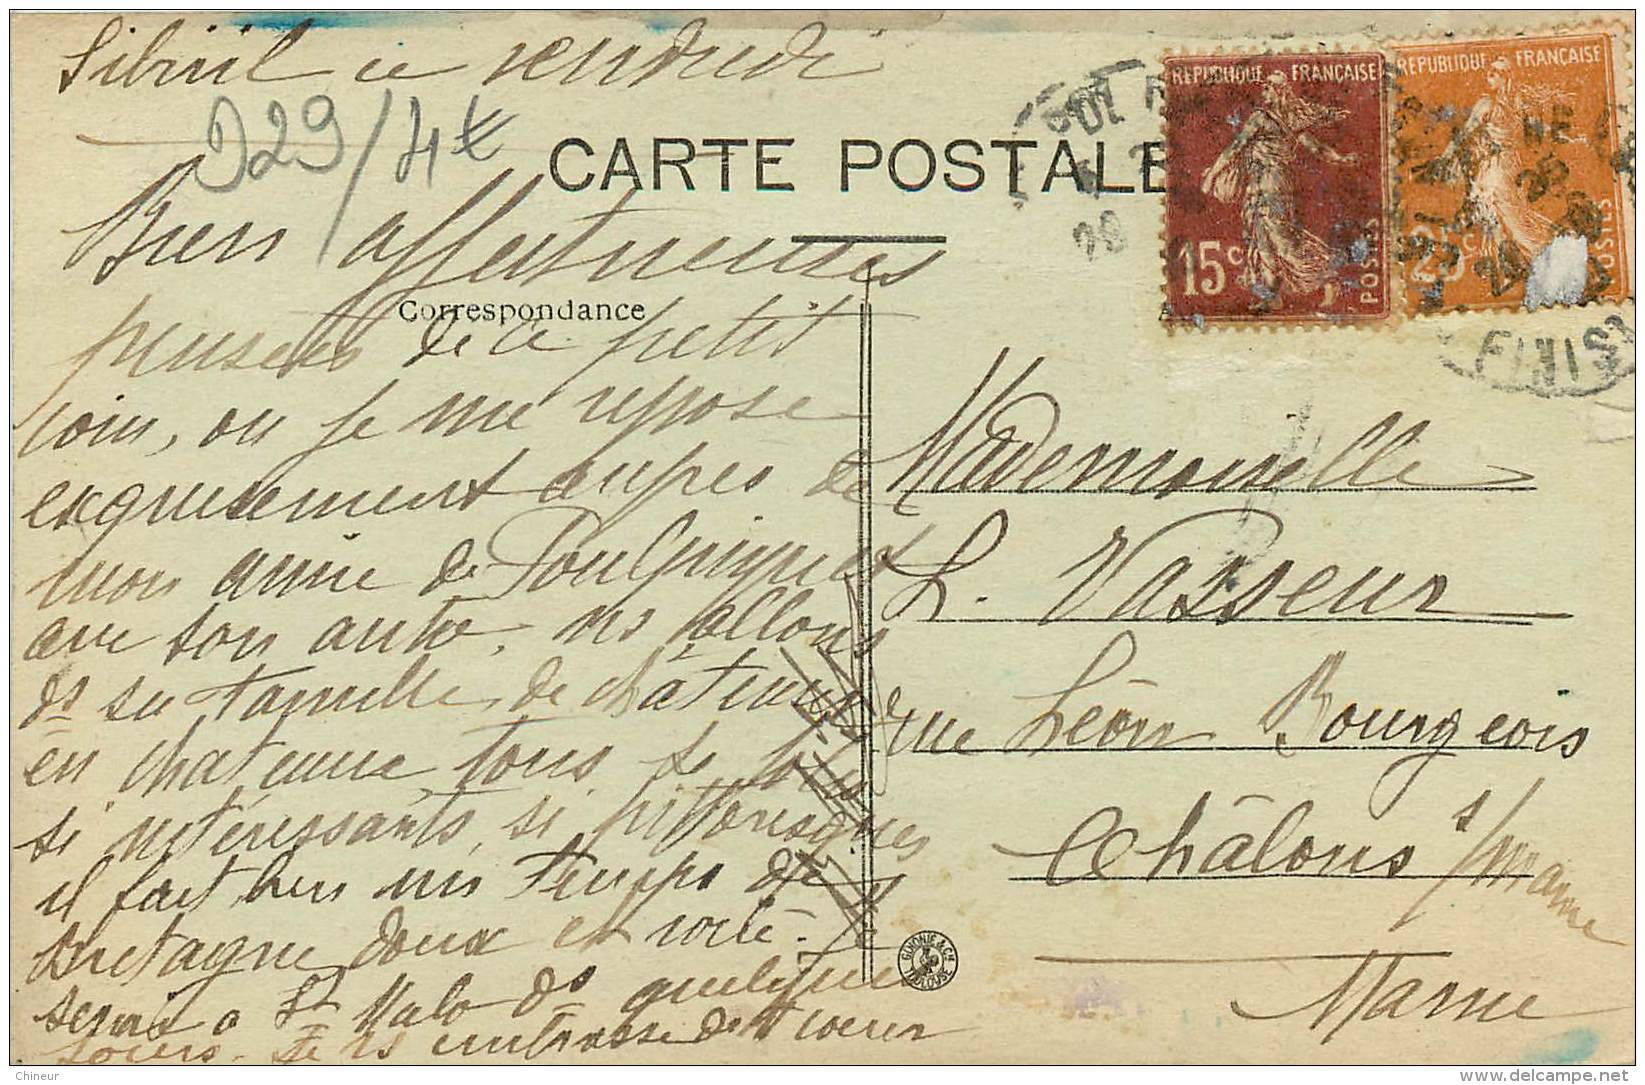 Sibiril ce vendredi
D29/4€
CARTE POSTALE
Correspondance
Bien affectueuses
pensées de ce petit
coin, ou je me repose
exquisement auprès de
mon amie de Poulpiquet
avec son auto, ns allons
ds sa famille de château
en chateau, tous si
si intéressants, si pittoresques
il fait bien un temps de
Bretagne doux et voilé. Je
serai à St Malo ds quelques
jours. Je vs embrasse de tt coeur
REPUBLIQUE FRANÇAISE
15c
POSTES
REPUBLIQUE FRANÇAISE
25c
POSTES
28
FINIST
Mademoiselle
L. Vasseur
rue Léon Bourgeois
Châlons s/Marne
Marne
GIHONIE & Cie
TOULOUSE
Chineur
www.delcampe.net